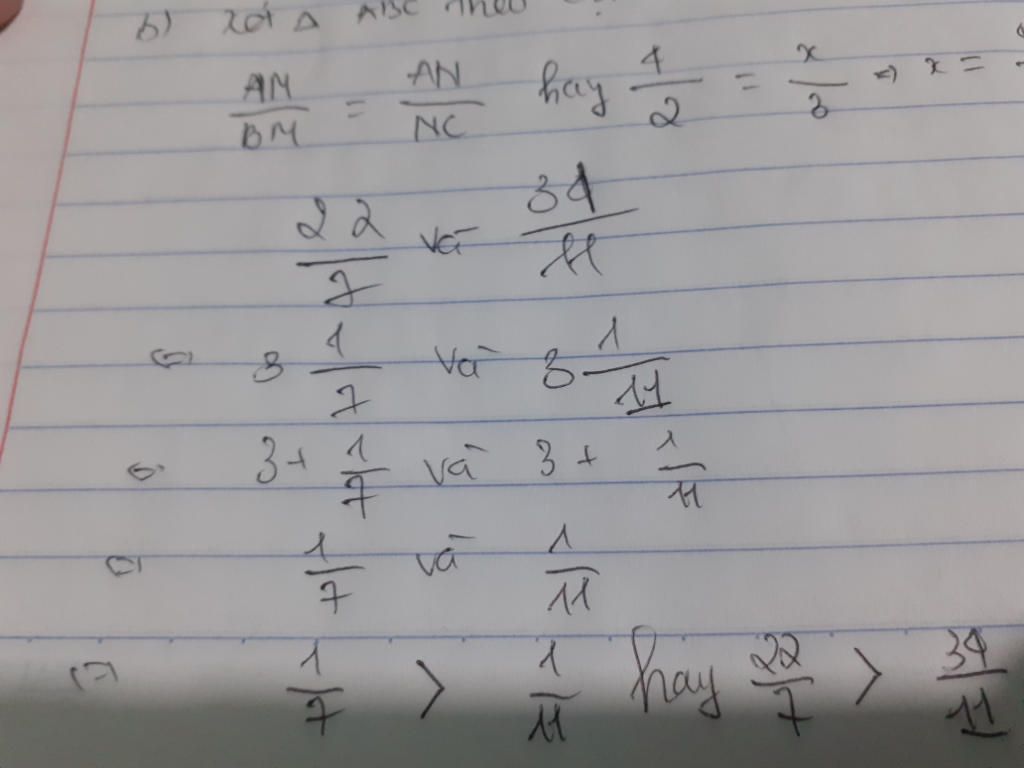 b) Xét △ ABC theo
AM/BM = AN/NC hay 4/2 = x/3 => x =
22/7 và 34/11
<=> 3 1/7 và 3 1/11
<=> 3 + 1/7 và 3 + 1/11
<=> 1/7 và 1/11
<=> 1/7 > 1/11 hay 22/7 > 34/11